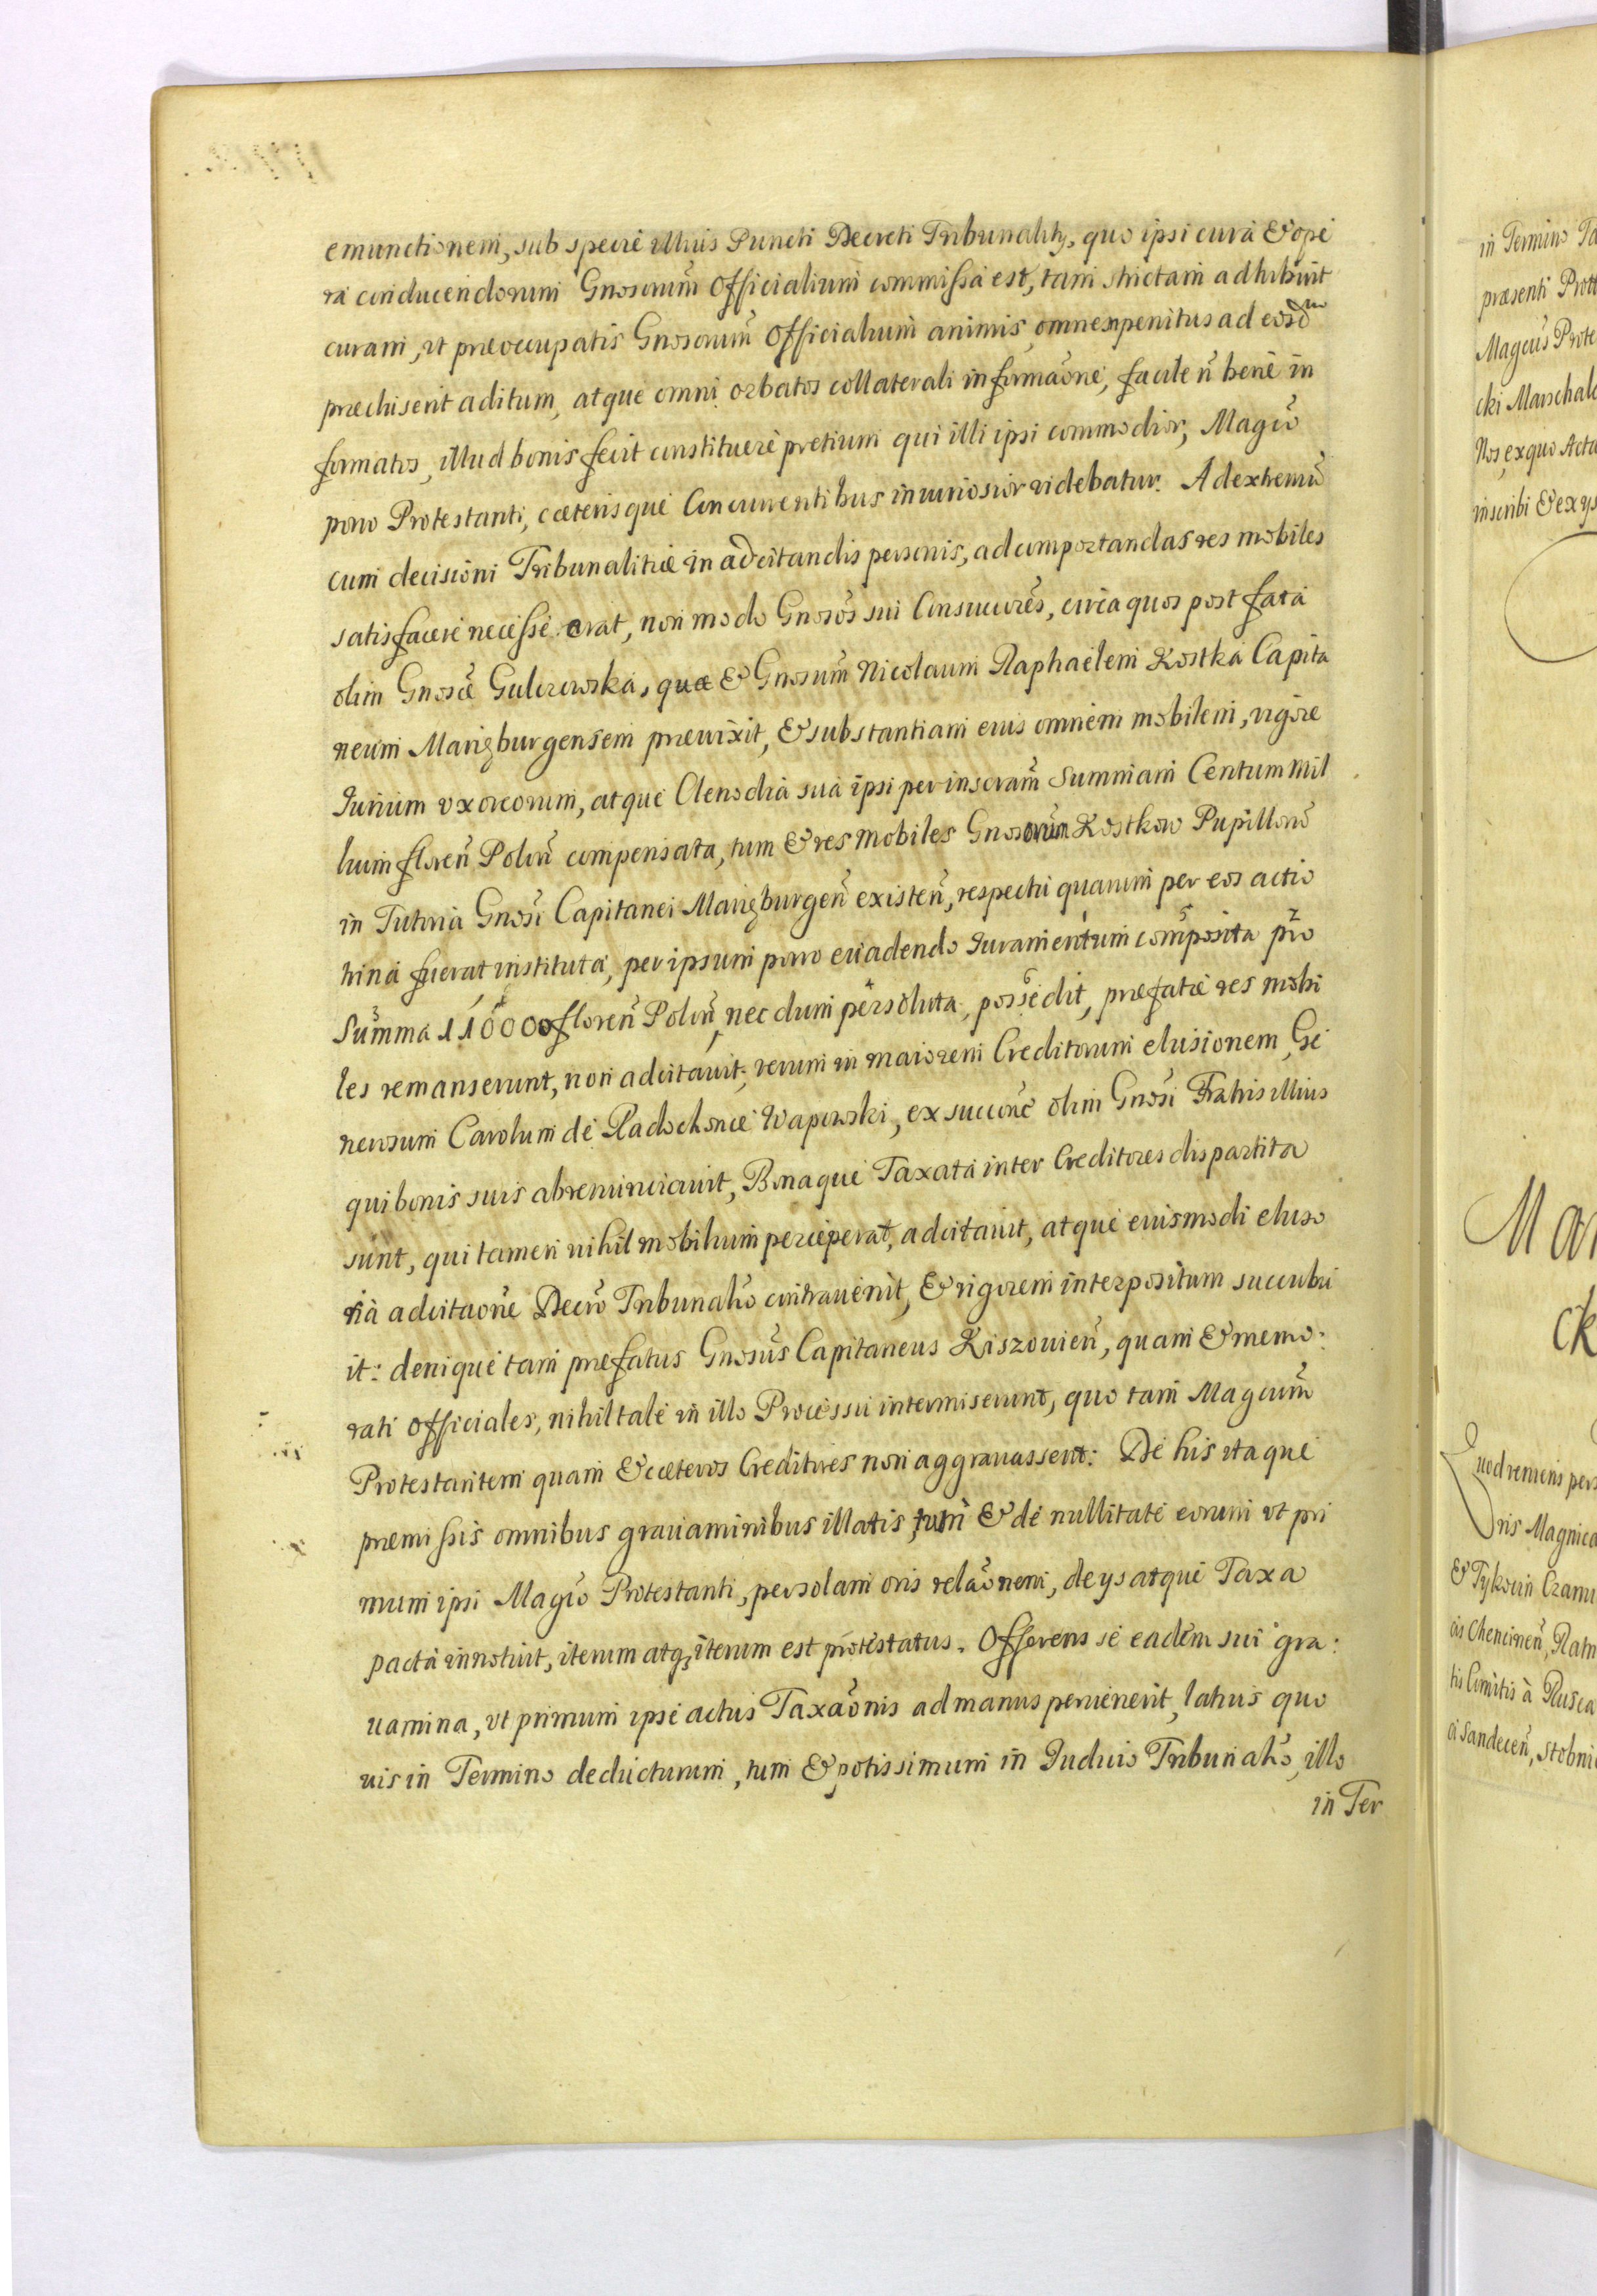 emunctionem, sub specie illius Puncti Decreti Tribunalitÿ, quo ipsi cura & ope
ra conducendorum Gnosorum̃ Officialium commissa est, tam strictam adhibuit
curam, vt preoccupatis Gnosorum̃ Officialium animis, omnem penitus ad eosdm
precluserit aditum, atque omni orbatos collaterali informãone, facile ñ bene in
formatos, illud bonis fecit constituere pretium qui illi ipsi commodior, Magco̅
porro Protestanti, cæterisque Concurrentibus iniuriosior videbatur. Ad extremũ
cum decisioni Tribunalitiæ in adcitandis personis, ad comportandas res mobiles
satisfacere necesse erat, non modo Gnosos̃ sui Consuccores̃, circa quos post fata
olim Gnosæ̃ Gulczewska, quæ & Gnosum̃ Nicolaum Raphaelem Kostka Capita
neum Mariæburgensem preuixit, & substantiam eius omnem mobilem, vigore
Iurium vxoreorum, atque Clenodia sua ipsi per inscram̃ Summam Centum Mil
lium floreñ Poloñ compensata, tum & res mobiles Gnosorum̃ Kostkow Pupilloru̅
in Tutoria Gnosi̅ Capitanei Mariæburgeñ existeñ, respectu quarum per eos actio
hina fuerat instituta, per ipsum porro euadendo Iuramentum composita pro
Summa 110000 floreñ Poloñ, nec dum persoluta, possedit, prefatæ res mobi
les remanserunt, non adcitauit, verum in maiorem Creditorum elusionem, Ge
nerosum Carolum de Radochonce Wapowski, ex succone̅ olim Gnosi̅ Fratris illius
qui bonis suis abrenunciauit, Bonaque Taxata inter Creditores dispartita
sunt, qui tamen nihil mobilium perceperat, adcitauit, atque eiusmodi eluso
ria adcitaone̅ Decro̅ Tribunalio̅ contrauenit, & rigorem interpositum succubu
it: denique tam prefatus Gnosus̅ Capitaneus Kiszouieñ, quam & memo:
rati Officiales, nihil tale in illo Processu intermiserunt, quo tam Magcum̅
Protestantem quam & cæteros Creditores non aggrauassent: De his itaque
premissis omnibus grauaminibus illatis, tum & de nullitate eorum vt pri
mum ipsi Magco̅ Protestanti, per solam oris relãonem, de ijs atque Taxa
pacta innotuit, iterum atq; iterum est protestatus. Offerens se eadem sui gra:
uamina, vt primum ipse actus Taxãonis ad manus peruenerit, latius quo
uis in Termino deducturum, tum & potissimum in Iudicio Tribunalio̅, illo
in Ter
in Termino Ta
præsenti Prot
Magcus̅ Prote
cki Marschalc
Nos, ex quo Acta
inscribi & ex ijs
Mar
ck
Quod veniens pers
ris Magnica
& Tykocin Czarn
cis Chencineñ, Ratn
tis Comitis à Rusca
ci Sandeceñ, Stobni